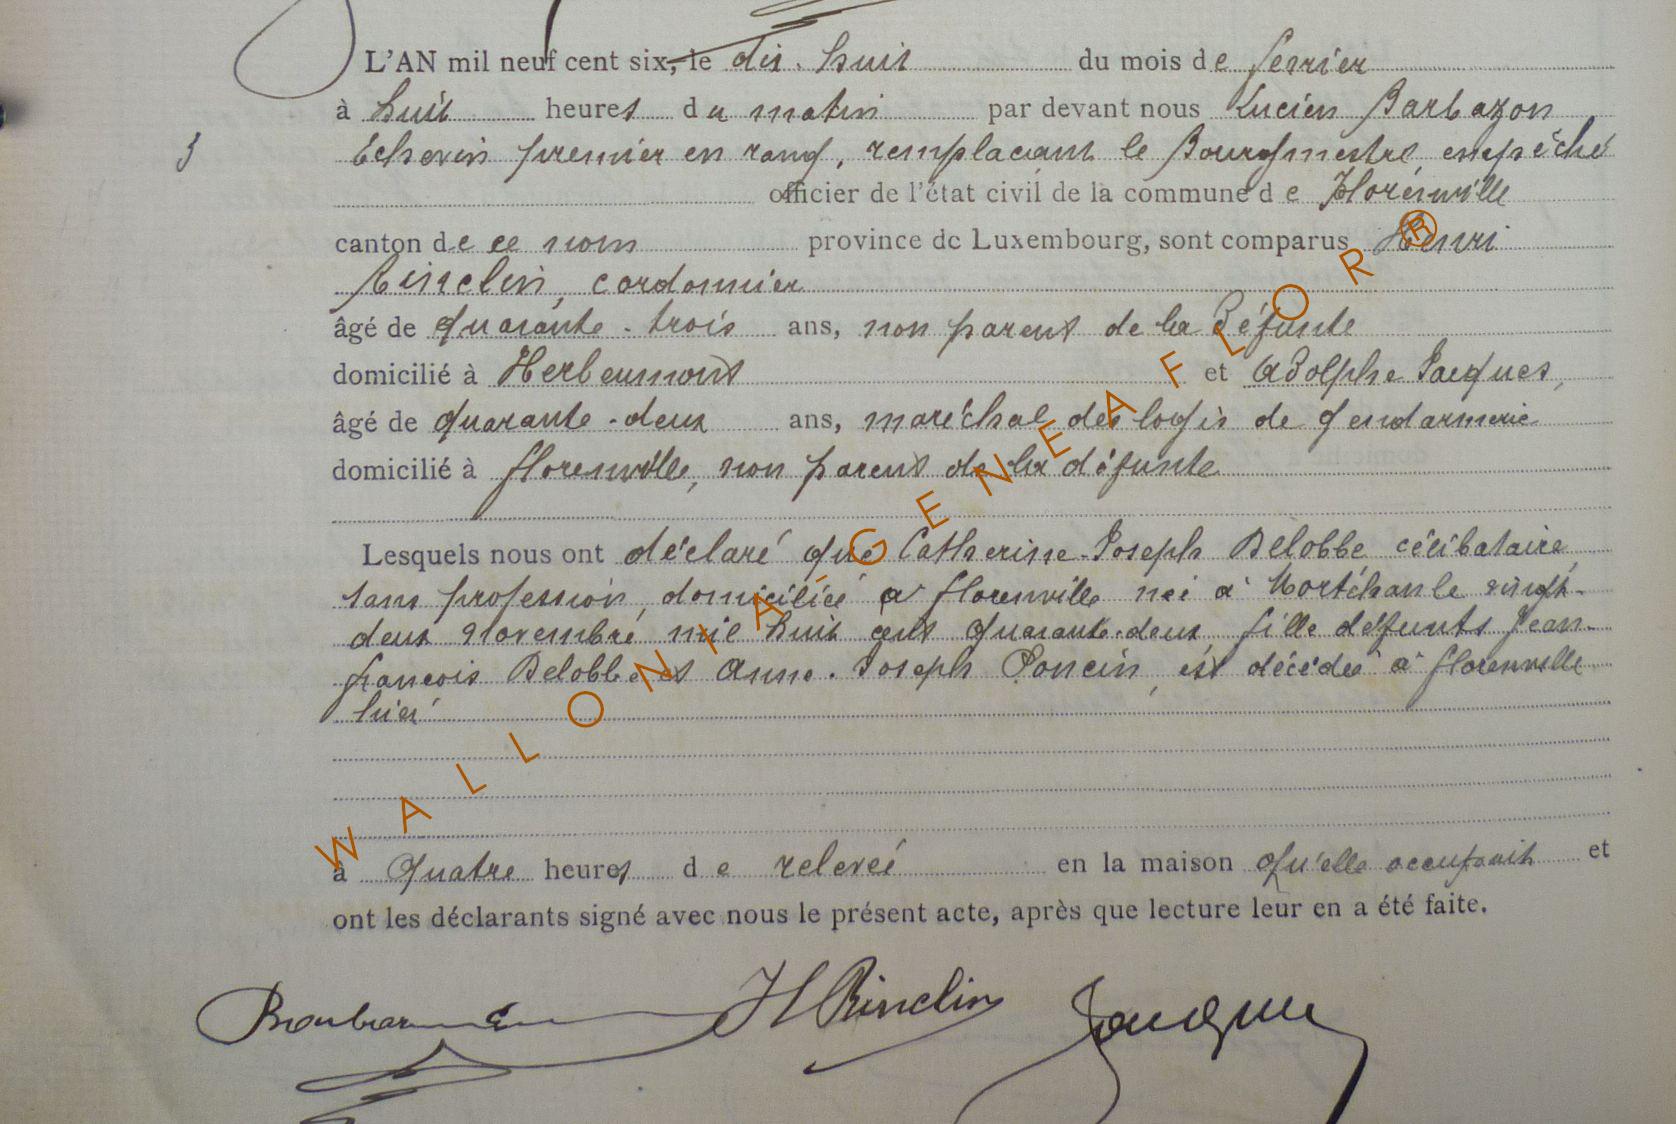 L'AN mil neuf cent six, le dix-huit du mois de fevrier
à huit heures du matin par devant nous Lucien Barbazon
Echevin premier en rang, remplaçant le Bourgmestre empêché
officier de l'état civil de la commune de Florenville
canton de ce nom province de Luxembourg, sont comparus Henri
Rinclin, cordonnier
âgé de quarante-trois ans, non parent de la défunte
domicilié à Herbeumont et Adolphe Jacques,
âgé de quarante-deux ans, maréchal des logis de gendarmerie
domicilié à florenville, non parent de la défunte
Lesquels nous ont déclaré que Catherine-Joseph Delobbe célibataire
sans profession, domiciliée à florenville née à Mortéhan le vingt-
deux novembre mil huit cent quarante-deux fille défunts Jean-
francois Delobbe et Anne-Joseph Poncin, est décédée à florenville
hier
à quatre heures de relevée en la maison qu'elle occupait et
ont les déclarants signé avec nous le présent acte, après que lecture leur en a été faite.
H Rinclin Jacques
WALLONIA GENEAFLOR ®